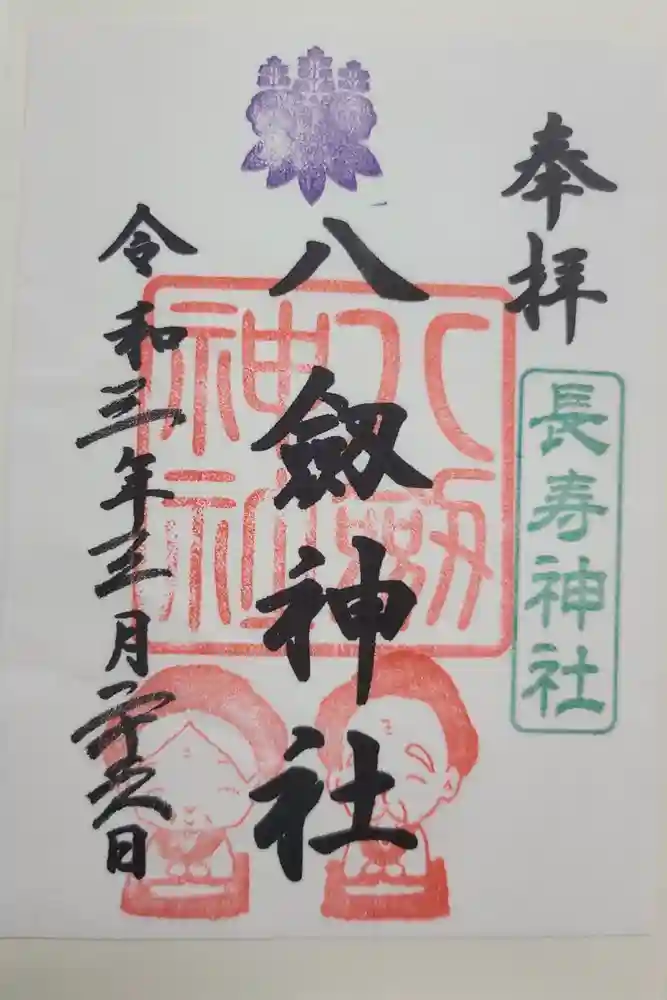 奉拝
長寿神社
八劔神社
八劔神社
令和三年三月二十八日